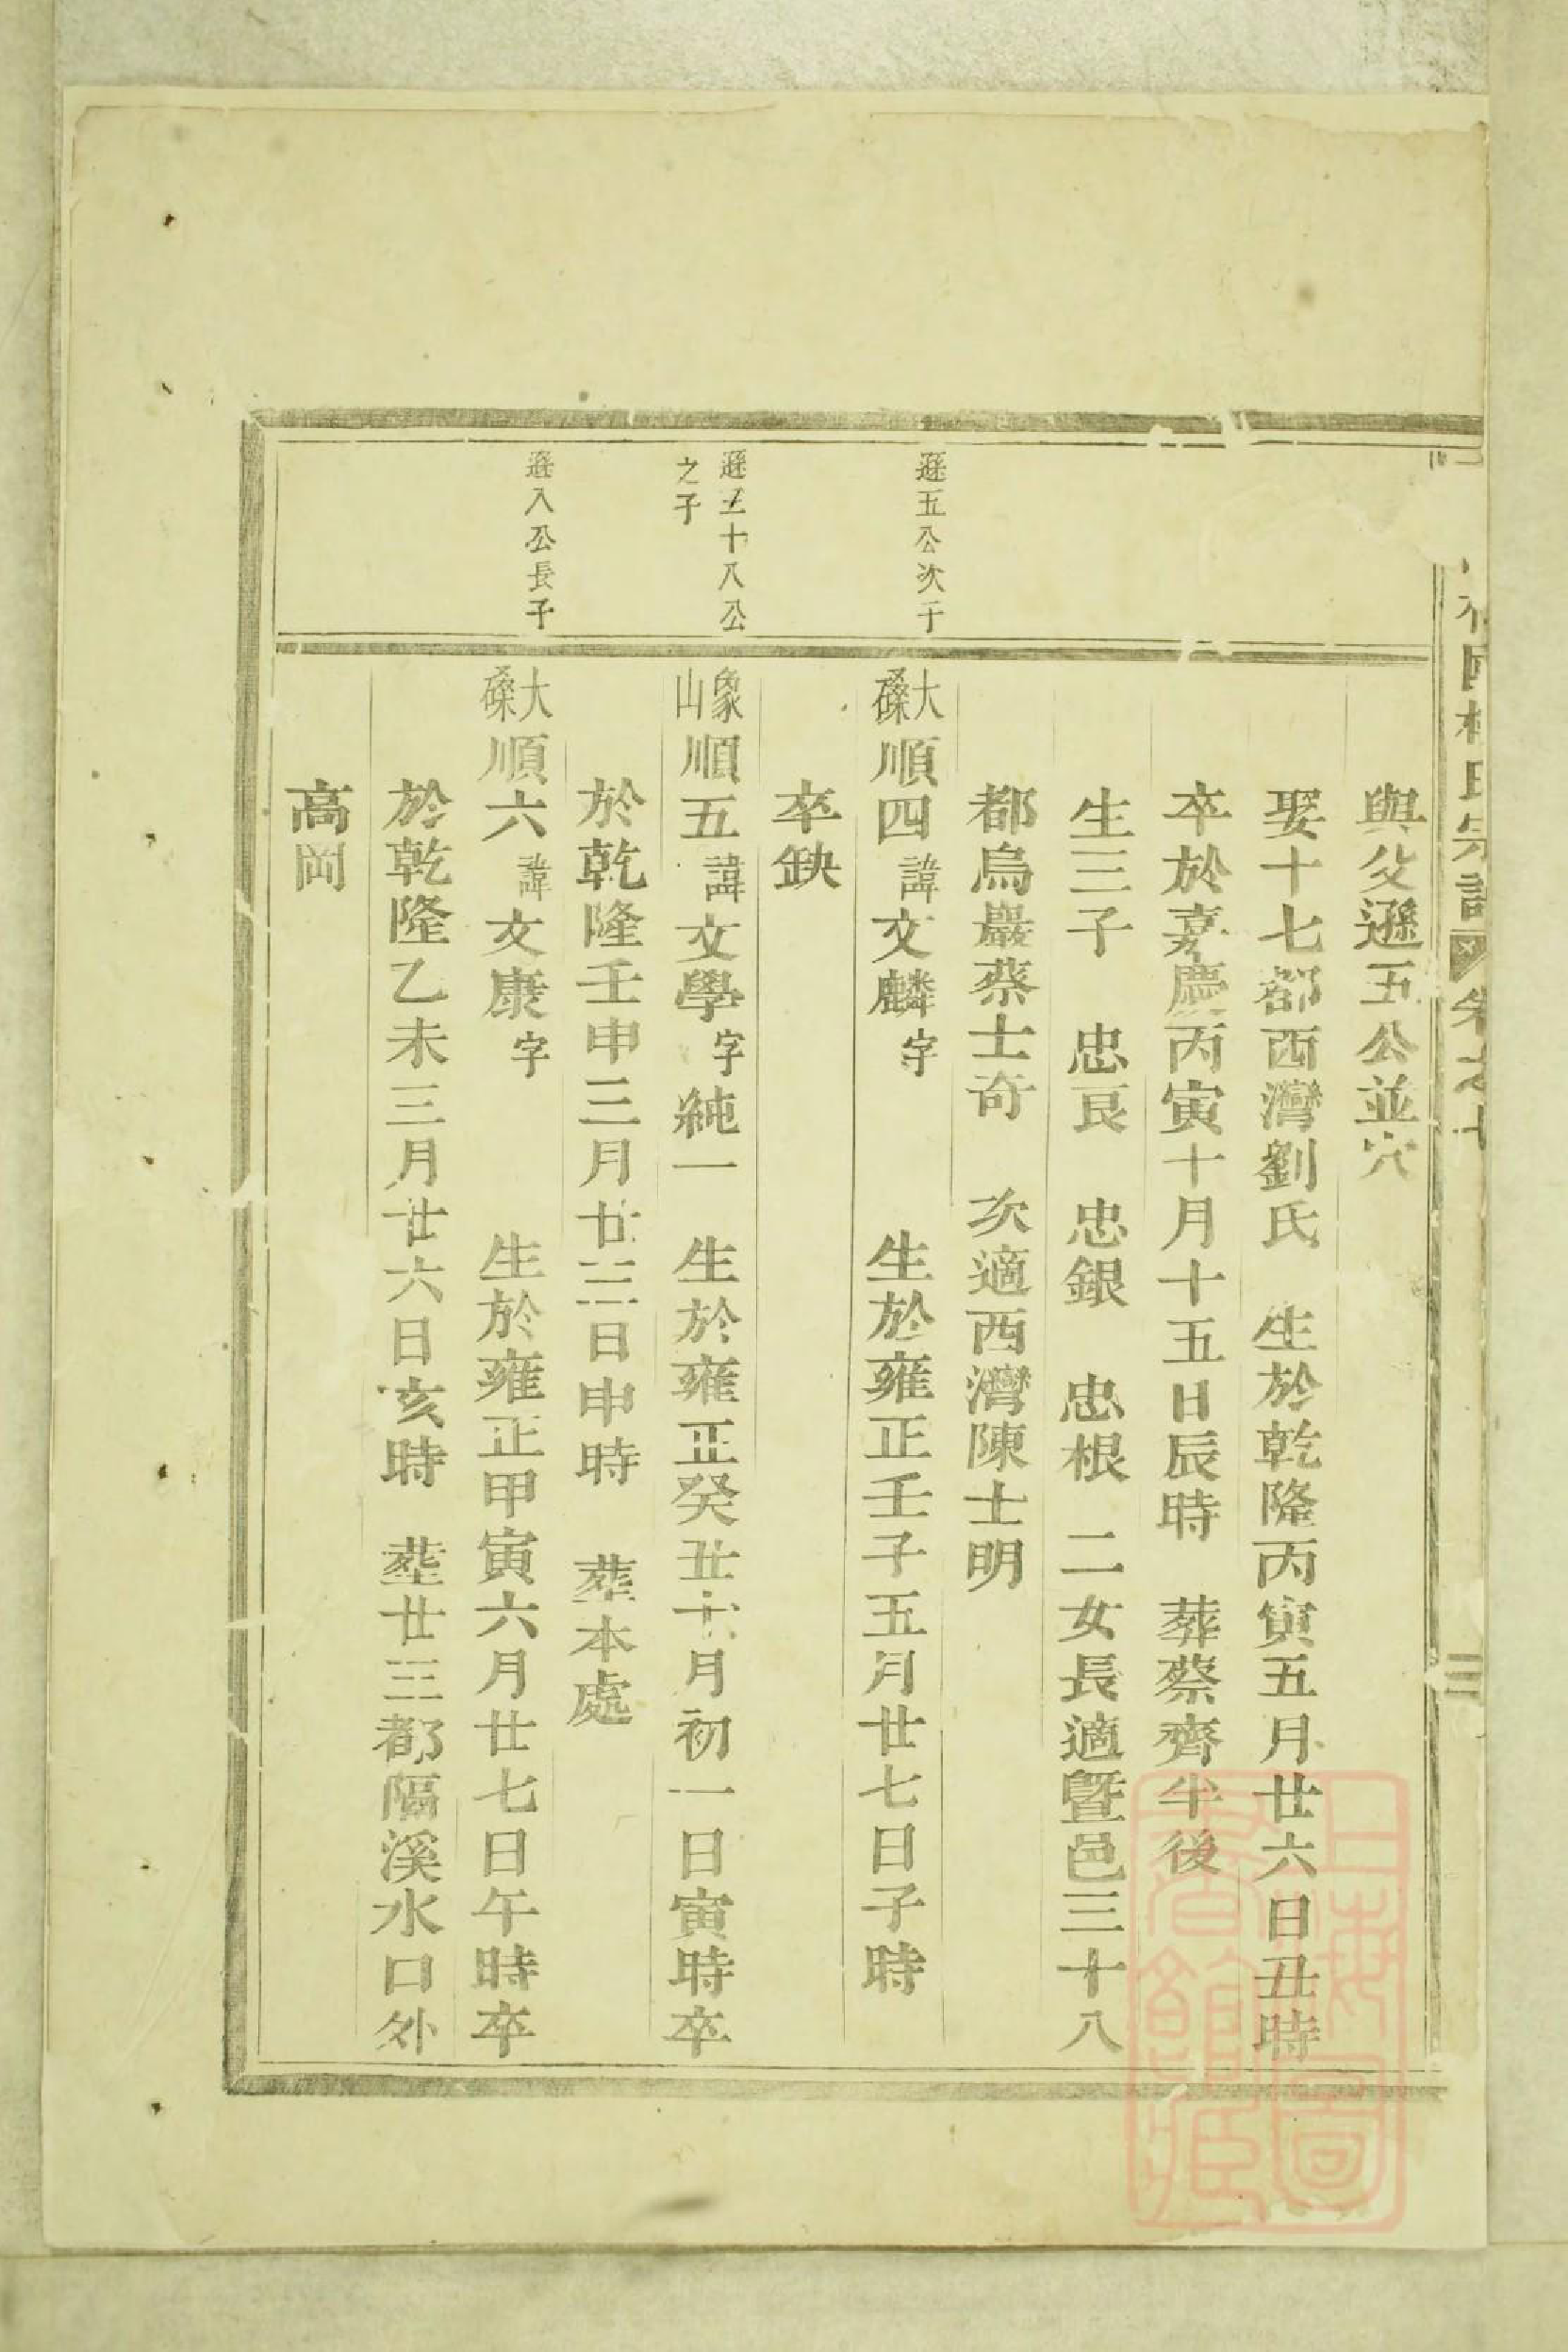 國 氏宗譜 卷之七
與父遜五公並穴
娶十七都西灣劉氏 生於乾隆丙寅五月廿六日丑時
卒於嘉慶丙寅十月十五日辰時 葬蔡齊半後
生三子 忠良 忠銀 忠根 二女長適暨邑三十八
都烏巖蔡士奇 次適西灣陳士明
遜五公次子
大磉順四諱文麟字 生於雍正壬子五月廿七日子時
卒缺
遜三十八公之子
象山順五諱文學字純一 生於雍正癸丑十月初一日寅時卒
於乾隆壬申三月廿三日申時 葬本處
遜八公長子
大磉順六諱文康字 生於雍正甲寅六月廿七日午時卒
於乾隆乙未三月廿六日亥時 塟廿三都隔溪水口外
高岡
上海圖書館藏